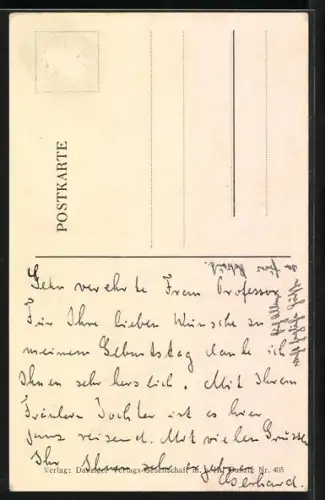 POSTKARTE
Sehr verehrte Frau Professor
Für Ihre lieben Wünsche zu
meinem Geburtstag danke ich
Ihnen sehr herzlich. Mit Ihrem
Fräulein Tochter ist es hier
ganz reizend. Mit vielen Grüssen
Ihr sehr ergebener
Eberhard.
Verlag: Danziger Verlags-Gesellschaft m. b. H., Danzig Nr. 405